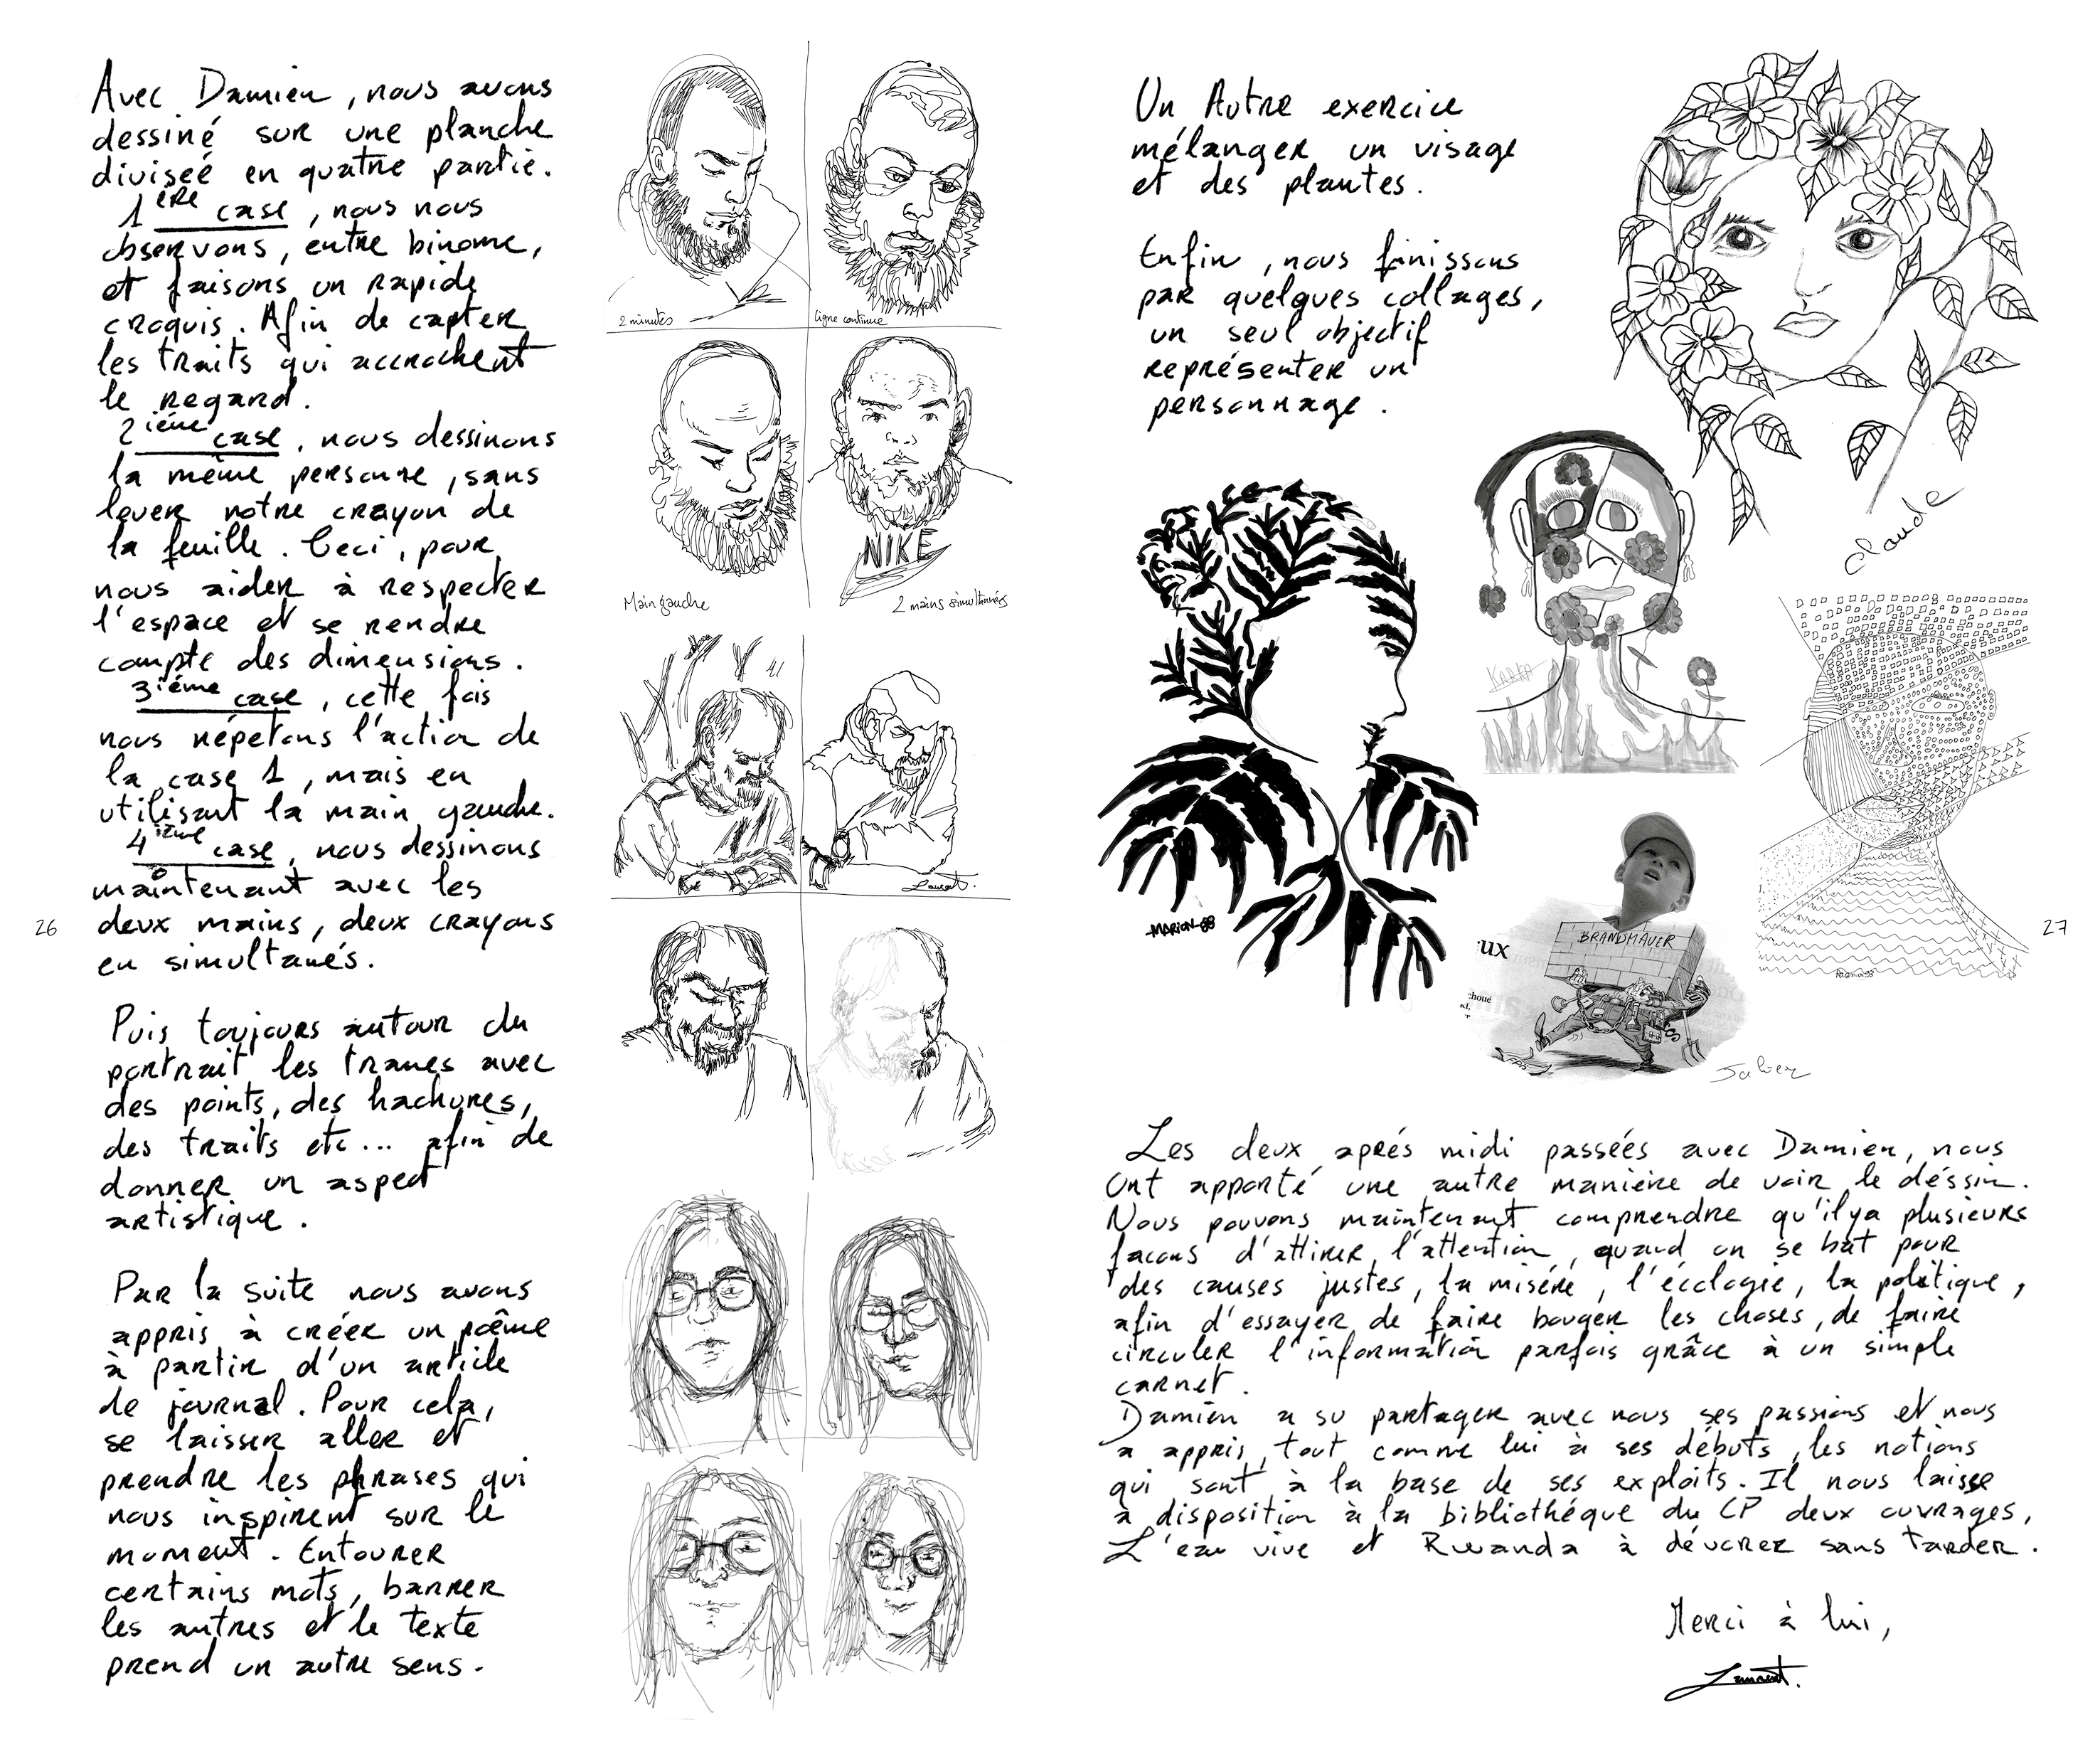 Avec Damien, nous avons
dessiné sur une planche
diviseé en quatre partie.
1ERE case, nous nous
observons, entre binome,
et faisons un rapide
croquis. Afin de capter
les traits qui accrochent
le regard.
2ième case, nous dessinons
la même personne, sans
lever notre crayon de
la feuille. Ceci, pour
nous aider à respecter
l'espace et se rendre
compte des dimensions.
3ième case, cette fois
nous répetons l'action de
la case 1, mais en
utilisant la main gauche.
4ième case, nous dessinons
maintenant avec les
deux mains, deux crayons
en simultanés.
Puis toujours autour du
portrait les trames avec
des points, des hachures,
des traits etc... afin de
donner un aspect
artistique.
Par la suite nous avons
appris à créer un poême
à partir d'un article
de journal. Pour cela,
se laisser aller et
prendre les phrases qui
nous inspirent sur le
moment. Entourer
certains mots, barrer
les autres et le texte
prend un autre sens.
26
2 minutes
ligne continue
NIKE
Main gauche
2 mains simultanées
Laurent.
Un Autre exercice
mélanger un visage
et des plantes.
Enfin, nous finissons
par quelques collages,
un seul objectif
représenter un
personnage.
Claude
MARION-88
BRANDMAUER
ux
choué
27
Les deux aprés midi passées avec Damien, nous
ont apporté une autre maniére de voir le déssin.
Nous pouvons maintenant comprendre qu'il ya plusieurs
facons d'attirer l'attention, quand on se bat pour
des causes justes, la misére, l'écologie, la politique,
afin d'essayer de faire bouger les choses, de faire
circuler l'information parfois grâce à un simple
carnet.
Damien a su partager avec nous ses passions et nous
a appris, tout comme lui à ses débuts, les notions
qui sont à la base de ses exploits. Il nous laisse
à disposition à la bibliothéque du CP deux ouvrages,
L'eau vive et Rwanda à dévorer sans tarder.
Merci à lui,
Laurent.